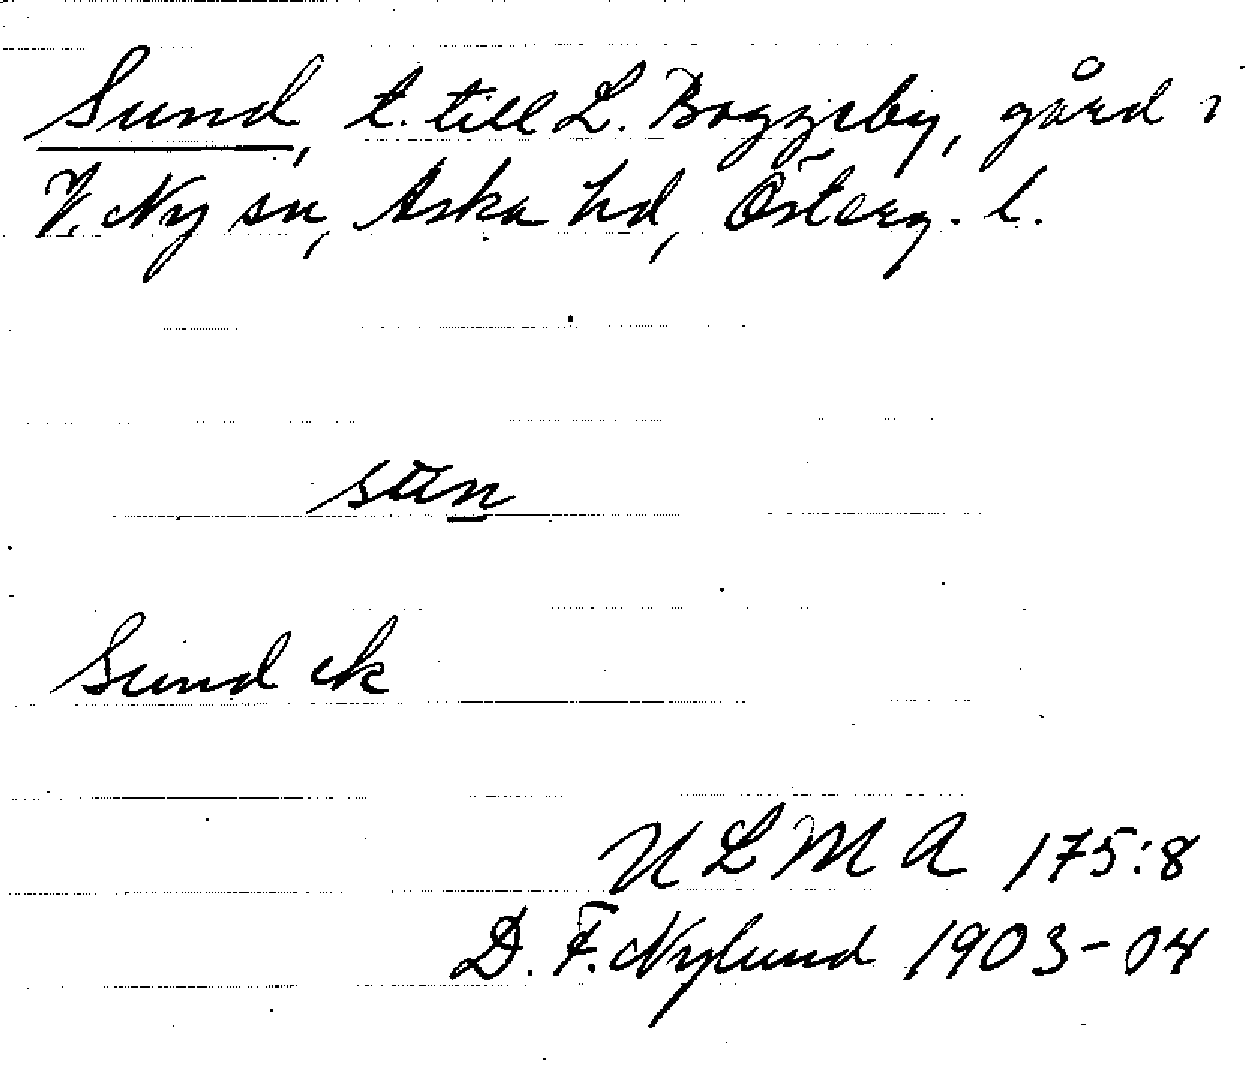 Sund, t. till L. Boggeby, gård i
V. Ny sn, Aska hd, Österg. l.
Sund ek
ULMA 175:8
D. F. Nylund 1903-04